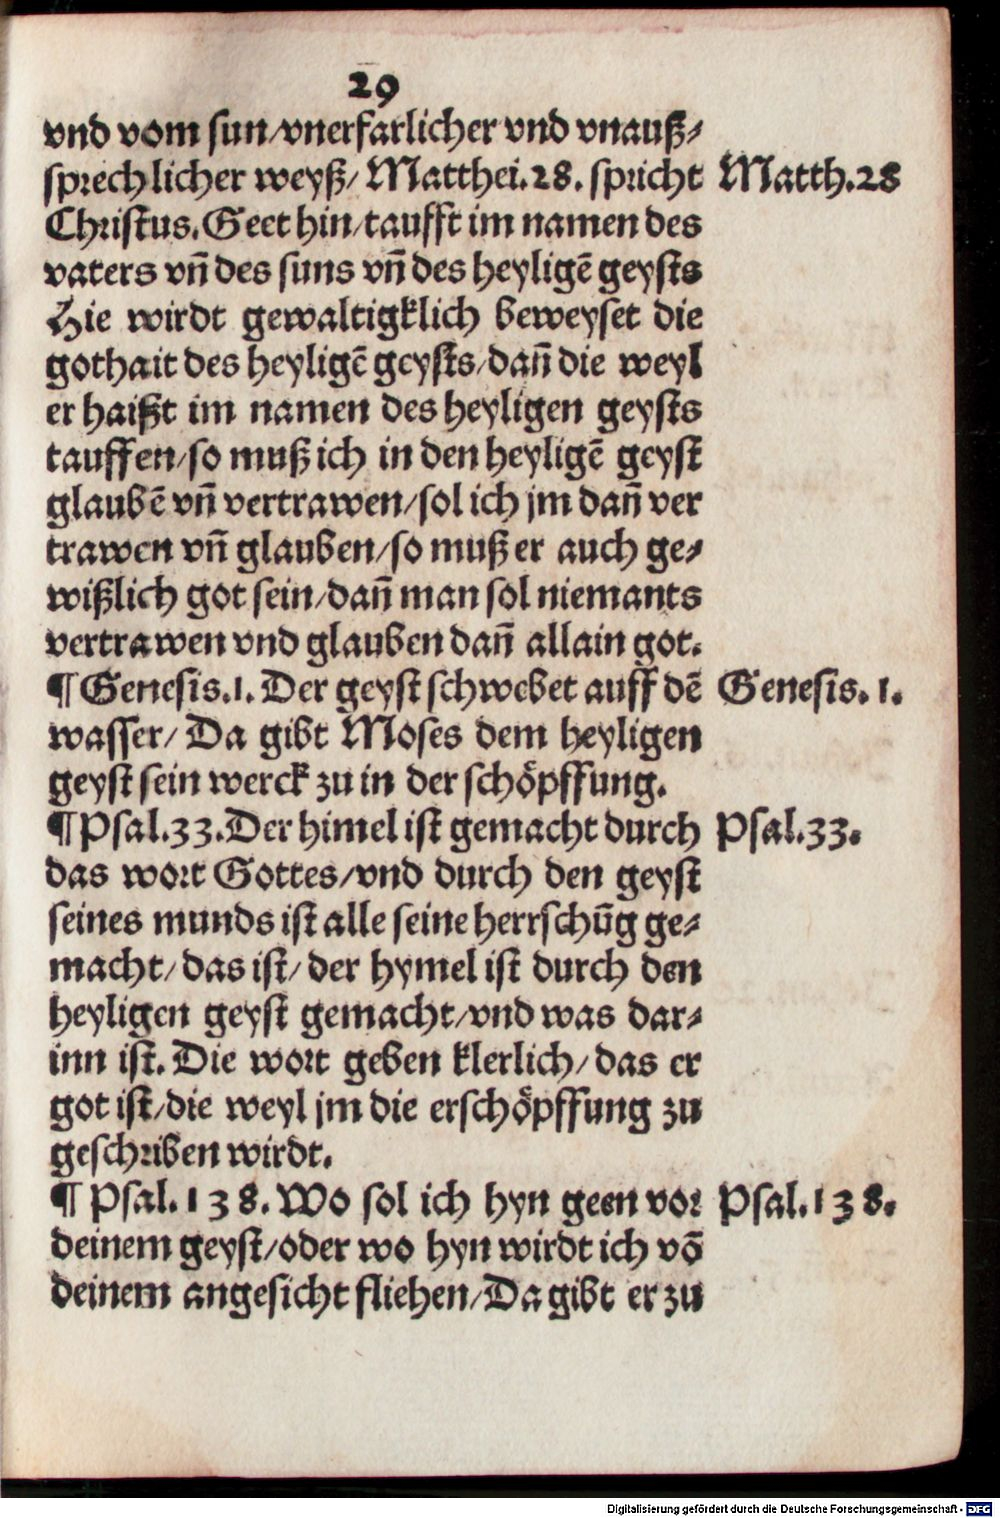 29
vnd vom sun/vnerfarlicher vnd vnauß⸗
sprechlicher weyß/ Matthei.28. spricht Matth.28
Christus. Geet hin/taufft im namen des
vaters vñ des suns vñ des heyligẽ geysts
Hie wirdt gewaltigklich beweyset die
gothait des heyligẽ geysts/dañ die weyl
er haißt im namen des heyligen geysts
tauffen/so muß ich in den heyligẽ geyst
glaubẽ vñ vertrawen/sol ich jm dañ ver
trawen vñ glauben/so muß er auch ge⸗
wißlich got sein/dañ man sol niemants
vertrawen vnd glauben dañ allain got.
¶ Genesis.1. Der geyst schwebet auff dẽ Genesis. 1.
wasser/ Da gibt Moses dem heyligen
geyst sein werck zu in der schöpffung.
¶ Psal.33. Der himel ist gemacht durch Psal.33.
das wort Gottes/vnd durch den geyst
seines munds ist alle seine herrschũg ge⸗
macht/ das ist/ der hymel ist durch den
heyligen geyst gemacht/vnd was dar⸗
inn ist. Die wort geben klerlich/ das er
got ist/die weyl jm die erschöpffung zu
geschriben wirdt.
¶ Psal. 138. Wo sol ich hyn geen vor Psal.138.
deinem geyst/oder wo hyn wirdt ich võ
deinem angesicht fliehen/Da gibt er zu
Digitalisierung gefördert durch die Deutsche Forschungsgemeinschaft - DFG